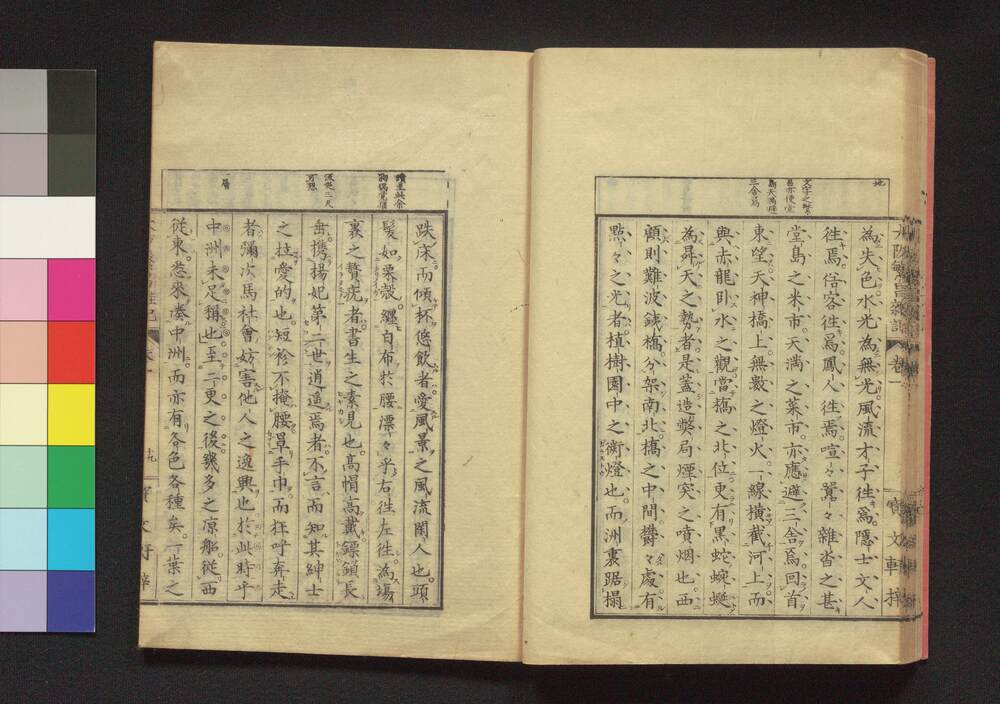 大阪繁昌雑記 卷一 寶文軒梓
地
文字之
為失色水光為無光風流才子徃焉隱士文人
徃焉俗客徃焉鳳人徃焉喧々囂々雜沓之甚
堂島之米市天満之菜市亦應避三舍焉回首
東望天神橋上無數之燈火一線橫截河上而
與赤龍臥水之觀當橋之北位更有黒蛇蜿蜒
為昇天之勢者是蓋造幣局煙突之噴烟也西
顧則難波鉄橋分架南北橋之中間欝々處有
點々之光者植樹園中之衛燈也而洲裏踞榻
讀至此余
一層
跌床而傾杯恁飲者愛風景之風流閑人也頭
髮如栗殼纒白布於腰漂々乎右徃左徃為塲
裏之贅疣者書生之素見也高帽高戴鏢鎖長
垂携揚妃第二世逍遥焉者不言而知其紳士
之拄愛的也短袗不掩腰單手巾而狂呼奔走
者彌次馬社會妨害他人之逸興也於此時乎
中洲未足稱也至二更之後幾多之凉船従西
従東忽來湊中洲而亦有各色各種矣一葉之
十九
寶文軒梓